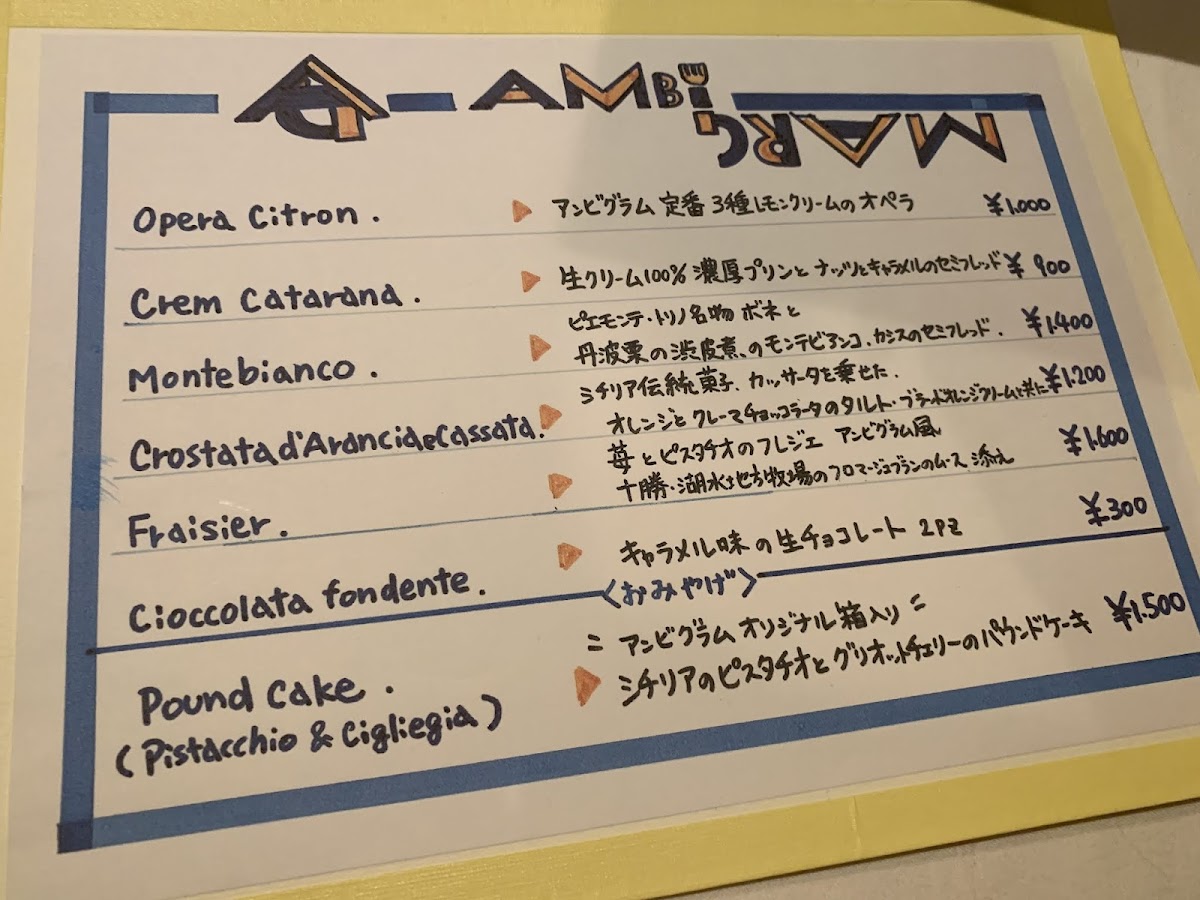 AMBi
GRAM
Opera Citron. アンビグラム 定番 3種レモンクリームのオペラ ¥1.000
Crem Catarana. 生クリーム100% 濃厚プリンと ナッツとキャラメルのセミフレッド ¥900
ピエモンテ・トリノ名物 ボネと
Montebianco. 丹波栗の渋皮煮、のモンテビアンコ、カシスのセミフレッド. ¥1.400
シチリア伝統菓子、カッサータを乗せた.
Crostata d'Arancia e Cassata. オレンジと クレーマチョッコラータのタルト・ブラッドオレンジクリームと共に ¥1.200
苺とピスタチオのフレジエ アンビグラム風
Fraisier. 十勝・湖水地方牧場のフロマージュブランのムース 添え ¥1.600
Cioccolata fondente. キャラメル味の生チョコレート 2Pz ¥300
〈おみやげ〉
= アンビグラム オリジナル箱入り =
Pound Cake. シチリアのピスタチオとグリオットチェリーのパウンドケーキ ¥1.500
(Pistacchio & Cigliegia)